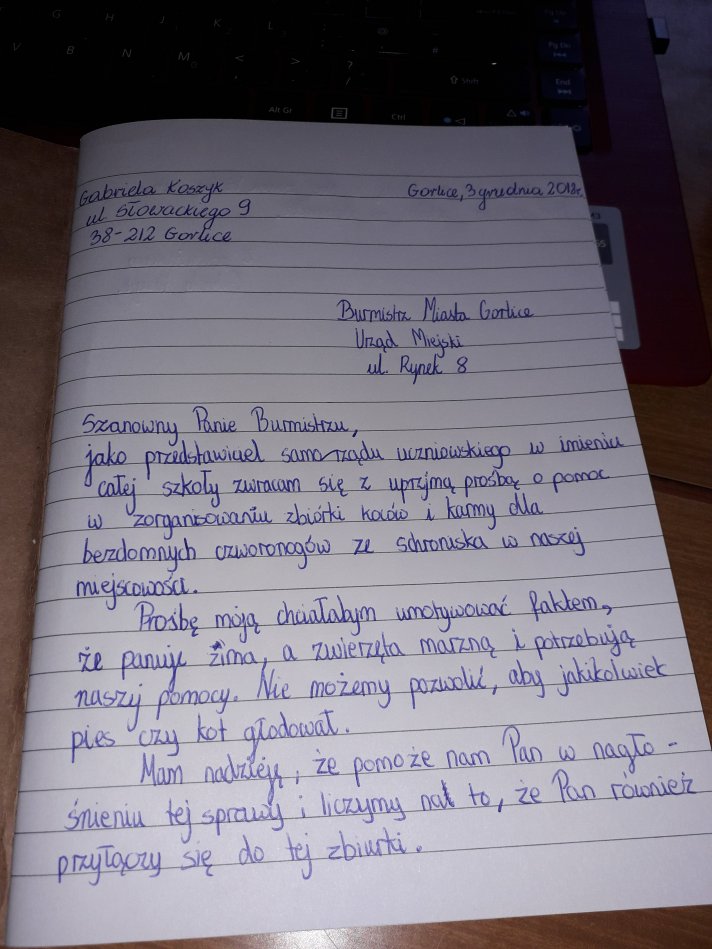 G
H
J
K
L
V
B
N
M
<
>
?
/
⇧ Shift
Pg Dn
End
Alt Gr
Ctrl
Gabriela Koszyk
ul Słowackiego 9
38-212 Gorlice
Gorlice, 3 grudnia 2018r.
Burmistrz Miasta Gorlice
Urząd Miejski
ul. Rynek 8
Szanowny Panie Burmistrzu,
jako przedstawiciel samorządu uczniowskiego w imieniu
całej szkoły zwracam się z uprzejmą prośbą o pomoc
w zorganisowaniu zbiórki koców i karmy dla
bezdomnych czworonogów ze schroniska w naszej
miejscowości.
Prośbę moją chciałabym umotywować faktem,
że panuje zima, a zwierzęta marzną i potrzebują
naszej pomocy. Nie możemy pozwolić, aby jakikolwiek
pies czy kot głodował.
Mam nadzieję, że pomoże nam Pan w nagło-
śnieniu tej sprawy i liczymy na to, że Pan również
przyłączy się do tej zbiurki.